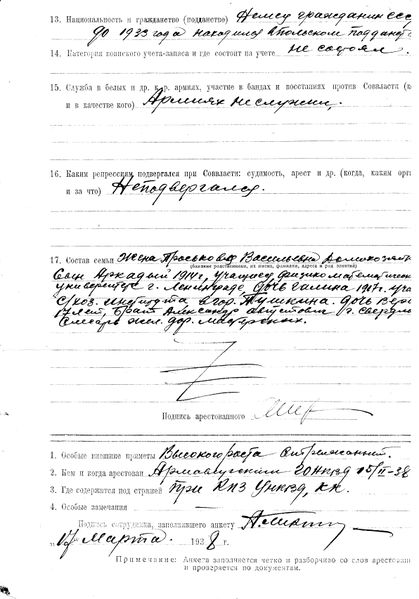 13. Национальность и гражданство (подданство) Немец гражданин ссс
до 1933 года находился в польском поддан
14. Категория воинского учета-запаса и где состоит на учете не состоял.
15. Служба в белых и др. к.-р. армиях, участие в бандах и восстаниях против Соввласти (к
и в качестве кого) Армиях не служил,
16. Каким репрессиям подвергался при Соввласти: судимость, арест и др. (когда, каким орга
и за что) Не подвергался.
17. Состав семьи Жена Просковья Васильевна Домохозяй
(близкие родственники, их имена, фамилии, адреса и род занятий)
Сын Аркадий 1914г, учащийся физико математичес
университет г. Ленинграде, дочь Галина 1917г. уча
с/хоз. института в гор. Пушкина. дочь Вера
17 лет, брат Александр Августович г. Свердло
Слесарь жел. дор. мастерских.
Подпись арестованного
1. Особые внешние приметы Высокого роста
2. Кем и когда арестован Армавирским ГОНКВД 15/II-38
3. Где содержится под стражей При КПЗ УНКВД, КК.
4. Особые замечания —
Подпись сотрудника, заполнявшего анкету
„17" Марта 1938 г.
Примечание: Анкета заполняется четко и разборчиво со слов арестован
и проверяется по документам.